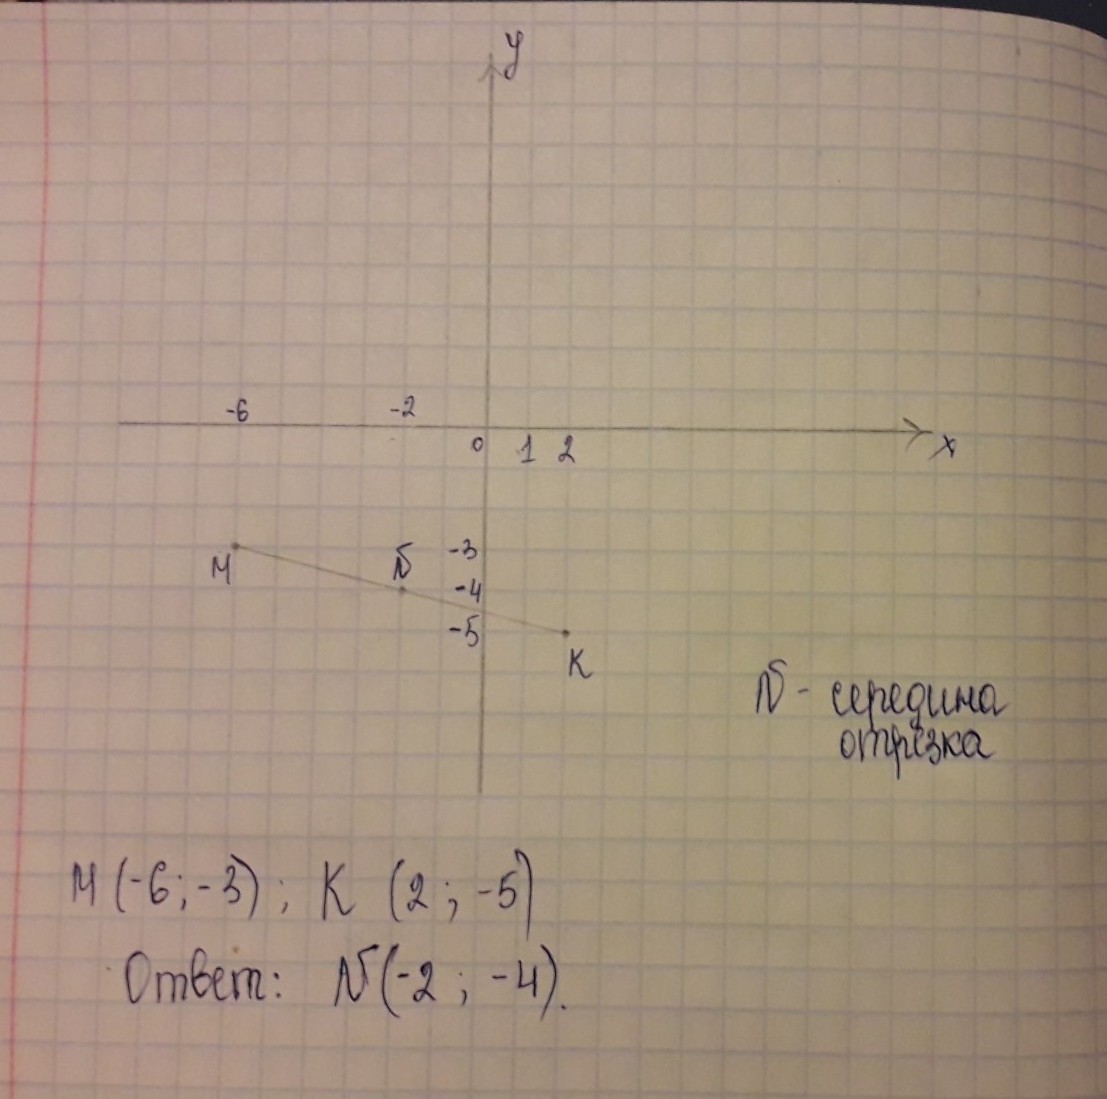 y
-6 -2
0 1 2 x
-3
M N -4
-5
K
N - середина
отрезка
M (-6; -3); K (2; -5)
Ответ: N (-2; -4).